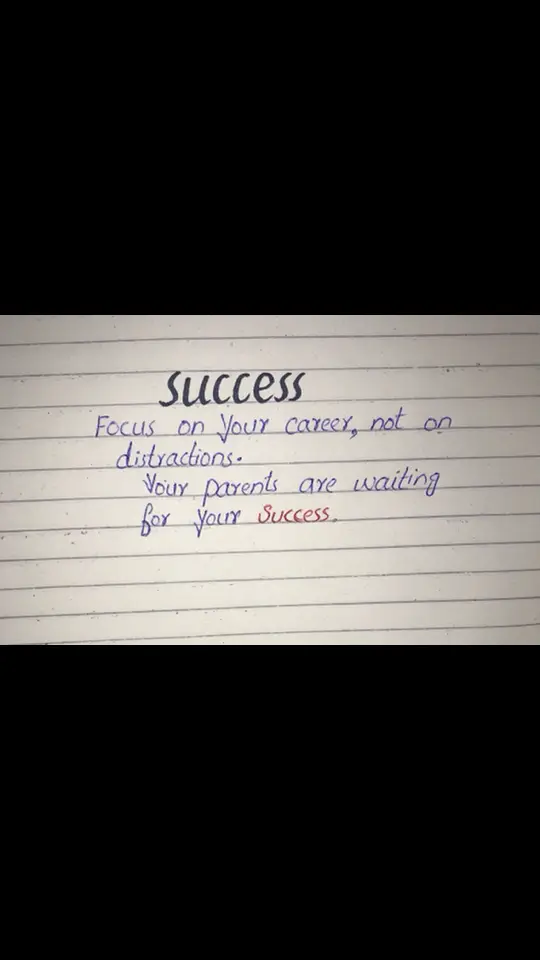 success
Focus on your career, not on
distractions.
Your parents are waiting
for your Success.